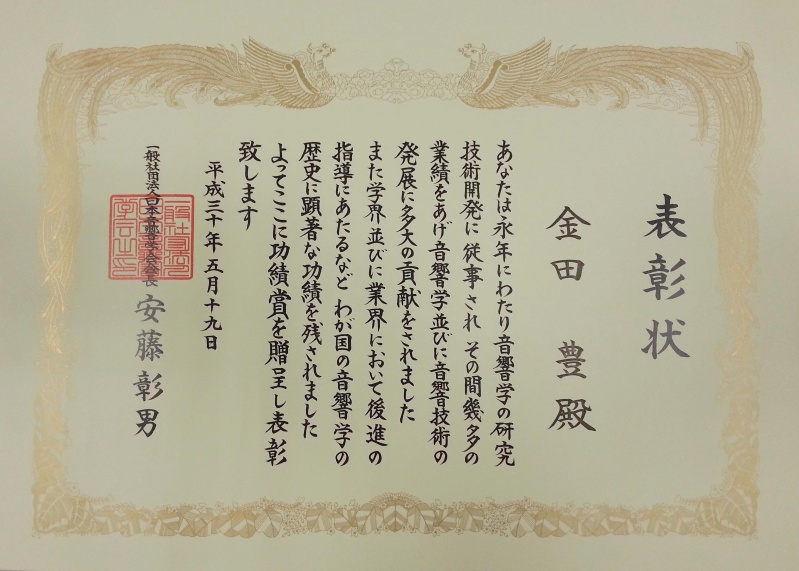 表彰状
金田 豊殿
あなたは永年にわたり音響学の研究
技術開発に従事され その間幾多の
業績をあげ音響学並びに音響技術の
発展に多大の貢献をされました
また学界並びに業界において後進の
指導にあたるなど わが国の音響学の
歴史に顕著な功績を残されました
よってここに功績賞を贈呈し表彰
致します
平成三十年五月十九日
一般社団法人日本音響学会会長 安藤彰男